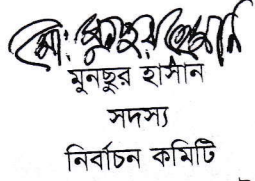 মো: মুনছুর হাসান
মুনছুর হাসান
সদস্য
নির্বাচন কমিটি